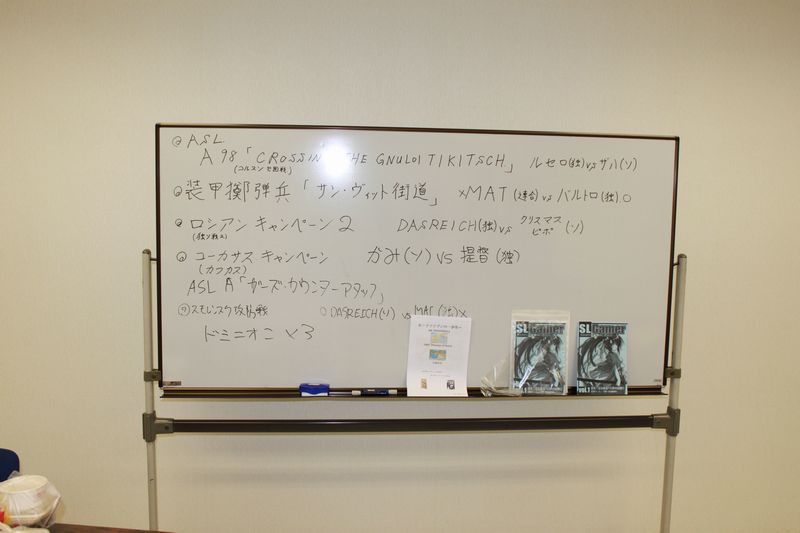 ASL
A98「CROSSIN THE GNULOI TIKITSCH」 ルセロ(独)vsザハ(ソ)
(コルスン包囲戦)
装甲擲弾兵「サン・ヴィット街道」 ×MAT(連合)vsバルトロ(独)○
ロシアンキャンペーン2 DASREICH(独)vs クリスマスピポ(ソ)
(独ソ戦2)
コーカサスキャンペーン かみ(ソ)VS提督(独)
(カフカス)
ASL A「ガーズ・カウンターアタック」
スモレンスク攻防戦 ○DASREICH(ソ) vs MAT(独)×
ドミニオン×3
SLGamer
vol.1
SLGamer
vol.1